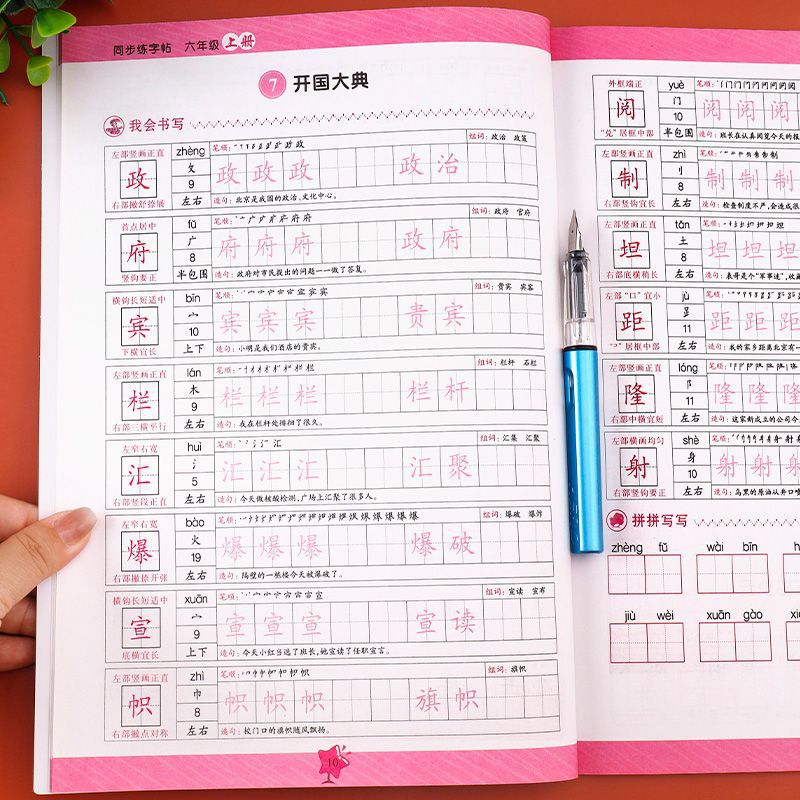 同步练字帖 六年级 上册
7 开国大典
我会书写
左部竖画正直 zhèng 笔顺: 组词：政治 政策
政 攵 政 政 政 政 治
9
右部撇舒捺展 左右 造句：北京是我国的政治、文化中心。
首点居中 fǔ 笔顺: 组词：政府 官府
府 广 府 府 府 政 府
8
竖钩要正 半包围 造句：政府对市民提出的问题一一做了答复。
横钩长短适中 bīn 笔顺: 组词：贵宾 宾客
宾 宀 宾 宾 宾 贵 宾
10
下横宜长 上下 造句：小明是我们酒店的贵宾。
左部竖画正直 lán 笔顺: 组词：栏杆 石栏
栏 木 栏 栏 栏 栏 杆
9
右部三横平行 左右 造句：我在栏杆处徘徊了很久。
左窄右宽 huì 笔顺: 组词：汇集 汇聚
汇 氵 汇 汇 汇 汇 聚
5
右部竖段正直 左右 造句：今天做核酸检测，广场上汇聚了很多人。
左窄右宽 bào 笔顺: 组词：爆破 爆炸
爆 火 爆 爆 爆 爆 破
19
右部撇捺开张 左右 造句：隔壁的一栋楼今天被爆破了。
横钩长短适中 xuān 笔顺: 组词：宣读 宣布
宣 宀 宣 宣 宣 宣 读
9
底横宜长 上下 造句：今天小红当选了班长，她宣读了任职宣言。
左部竖画正直 zhì 笔顺: 组词：旗帜
帜 巾 帜 帜 帜 旗 帜
8
右部撇点对称 左右 造句：校门口的旗帜随风飘扬。
10
外框端正 yuè 笔顺:
阅 门 阅 阅 阅
10
“兑”居框中部 半包围 造句：班长在认真阅览今天的报
左部竖画正直 zhì 笔顺:
制 刂 制 制 制
8
右部竖钩宜长 左右 造句：检查制度不严，会造成很
左部竖画正直 tǎn 笔顺:
坦 土 坦 坦 坦
8
右部底横稍长 左右 造句：表哥是个“军事迷”，收藏
左部“口”宜小 jù 笔顺:
距 距 距 距
11
居框中部 左右 造句：我的家乡距离北京有一
左部竖画正直 lóng 笔顺:
隆 阝 隆 隆 隆
11
右部中横宜短 左右 造句：这家新成立的公司今
左部横画均匀 shè 笔顺:
射 身 射 射 射
10
右部竖钩要正 左右 造句：乌黑的原油从井口喷
拼拼写写
zhèng fǔ wài bīn h
jiù wèi xuān gào xi